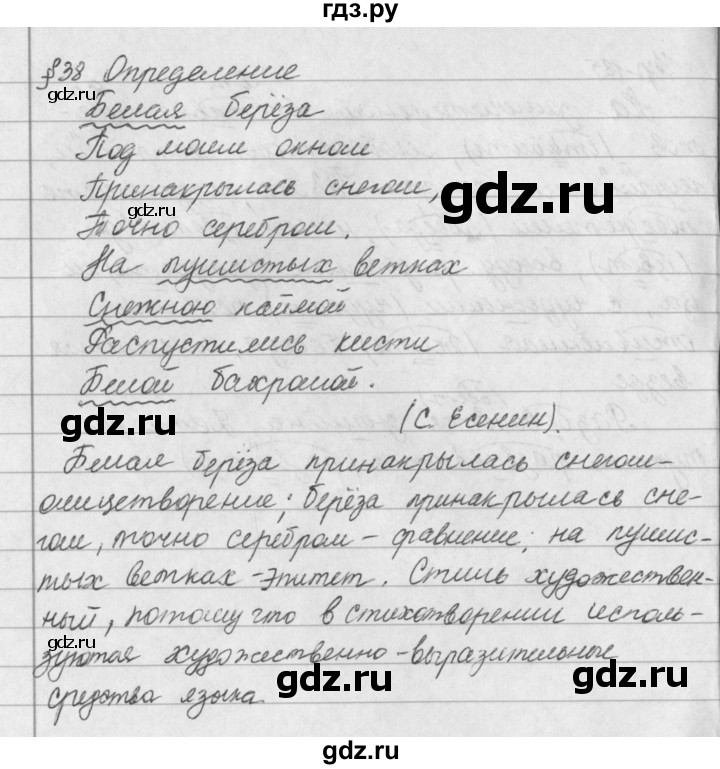 гдз.ру
§38 Определение
Белая берёза
Под моим окном
Принакрылась снегом,
Точно серебром.
На пушистых ветках
Снежною каймой
Распустились кисти
Белой бахромой.
(С. Есенин).
Белая берёза принакрылась снегом-
олицетворение; берёза принакрылась сне-
гом, точно серебром - сравнение; на пушис-
тых ветках - эпитет. Стиль художествен-
ный, потому что в стихотворении исполь-
зуются художественно-выразительные
средства языка.
gdz.ru
gdz.ru
gdz.ru
gdz.ru
gdz.ru
gdz.ru
gdz.ru
gdz.ru
gdz.ru
gdz.ru
gdz.ru
gdz.ru
gdz.ru
gdz.ru